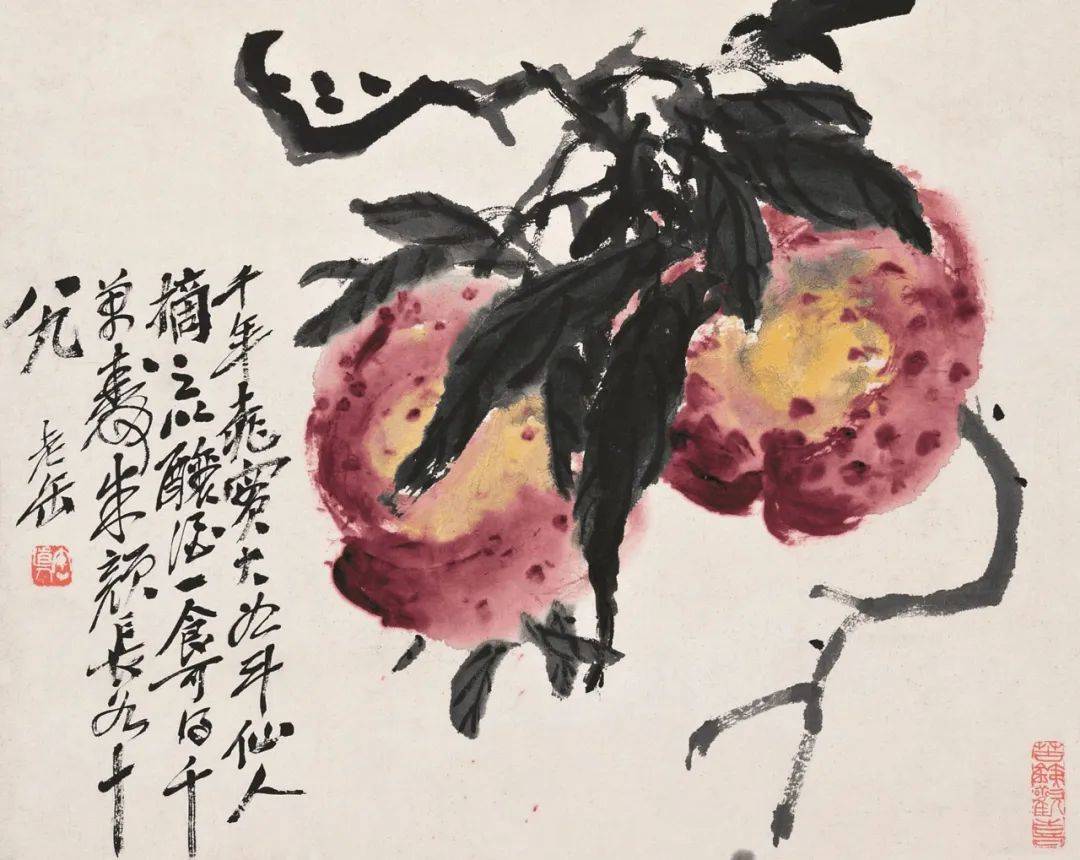 千年桃實大如斗仙人
摘之以釀酒一食可得千
萬壽朱顏長如十
八九
老缶